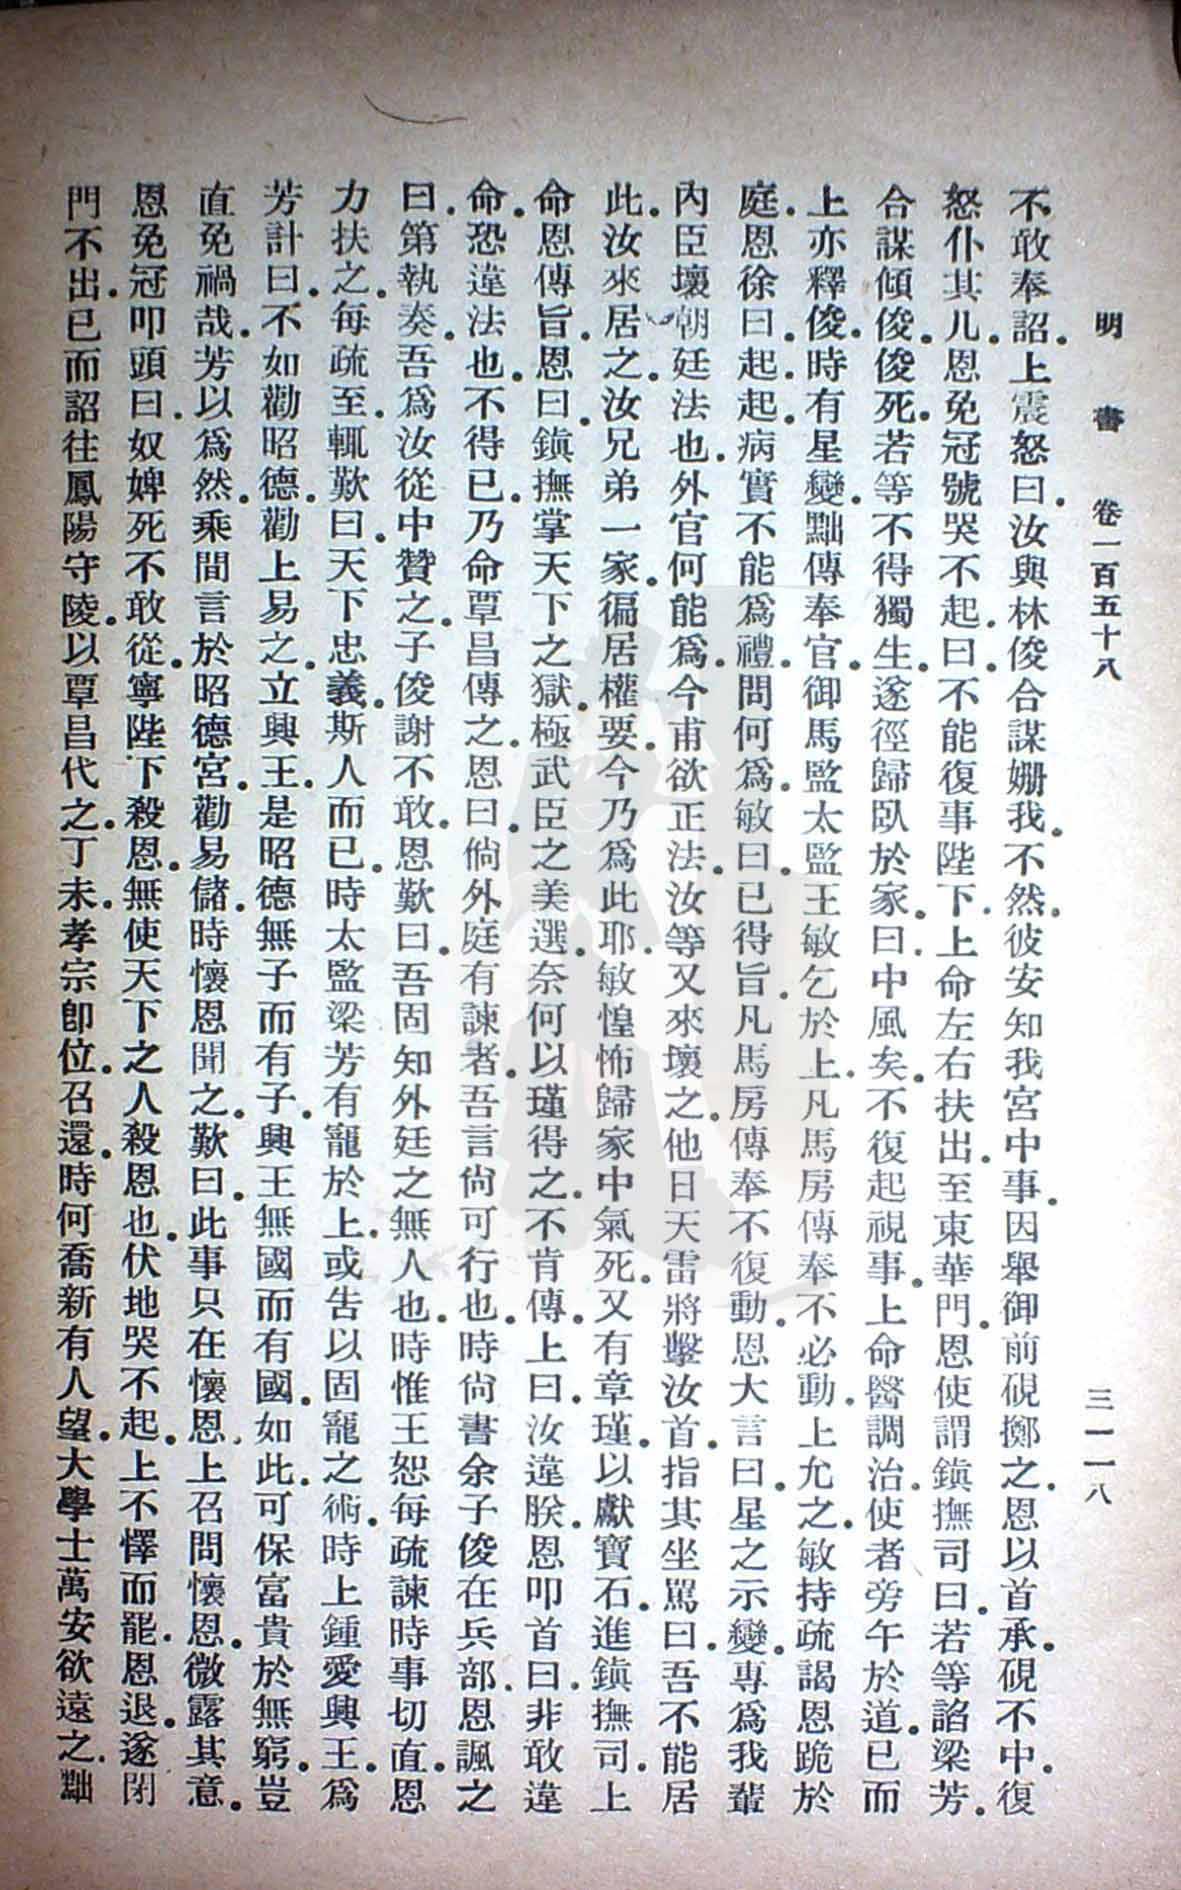 明書 卷一百五十八 三一一八
不敢奉詔。上震怒曰。汝與林俊合謀姍我。不然。彼安知我宮中事。因舉御前硯擲之。恩以首承。硯不中。復
怒仆其几。恩免冠號哭不起。曰。不能復事陛下。上命左右扶出。至東華門。恩使謂鎮撫司曰。若等諂梁芳。
合謀傾俊。俊死。若等不得獨生。遂徑歸臥於家。曰。中風矣。不復起視事。上命醫調治。使者旁午於道。已而
上亦釋俊。時有星變。黜傳奉官。御馬監太監王敏乞於上。凡馬房傳奉不必動。上允之。敏持疏謁恩跪於
庭。恩徐曰。起。起。病實不能爲禮。問何爲。敏曰。已得旨。凡馬房傳奉不復動。恩大言曰。星之示變。專爲我輩
內臣壞朝廷法也。外官何能爲。今甫欲正法。汝等又來壞之。他日天雷將擊汝首。指其坐罵曰。吾不能居
此。汝來居之。汝兄弟一家。徧居權要。今乃爲此耶。敏惶怖歸家中氣死。又有章瑾。以獻寶石。進鎮撫司。上
命恩傳旨。恩曰。鎮撫掌天下之獄。極武臣之美選。奈何以瑾得之。不肯傳。上曰。汝違朕。恩叩首曰。非敢違
命。恐違法也。不得已。乃命覃昌傳之。恩曰。倘外庭有諫者。吾言尙可行也。時尙書余子俊在兵部。恩諷之
曰。第執奏。吾爲汝從中贊之。子俊謝不敢。恩歎曰。吾固知外廷之無人也。時惟王恕每疏諫時事切直。恩
力扶之。每疏至。輒歎曰。天下忠義。斯人而已。時太監梁芳有寵於上。或告以固寵之術。時上鍾愛興王。爲
芳計曰。不如勸昭德。勸上易之。立興王。是昭德無子而有子。興王無國而有國。如此。可保富貴於無窮。豈
直免禍哉。芳以爲然。乘間言於昭德宮。勸易儲。時懷恩聞之。歎曰。此事只在懷恩。上召問懷恩。微露其意。
恩免冠叩頭曰。奴婢死不敢從。寧陛下殺恩。無使天下之人殺恩也。伏地哭不起。上不懌而罷。恩退。遂閉
門不出。已而詔往鳳陽守陵。以覃昌代之。丁未。孝宗卽位。召還。時何喬新有人望。大學士萬安欲遠之。黜